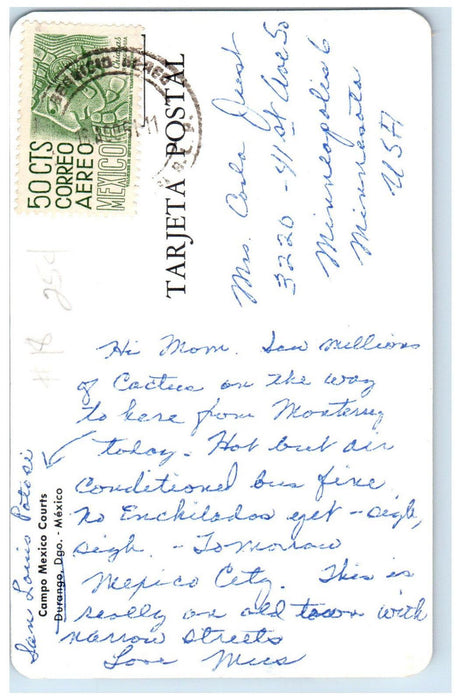 50 CTS
CORREO
AEREO
MEXICO
SERVICIO AEREO
TARJETA POSTAL
Mrs. Carla
3220 - 41st Ave So
Minneapolis 6
Minnesota
USA
# 18 25¢
Hi Mom. Saw millions
of Cactus on the way
to here from Monterrey
today. Hot but air
conditioned bus fine,
no Enchilados yet - sigh,
sigh. - Tomorrow
Mexico City. This is
really an old town with
narrow streets
Love
San Louis Potosi
Campo Mexico Courts
Durango, Dgo. - México